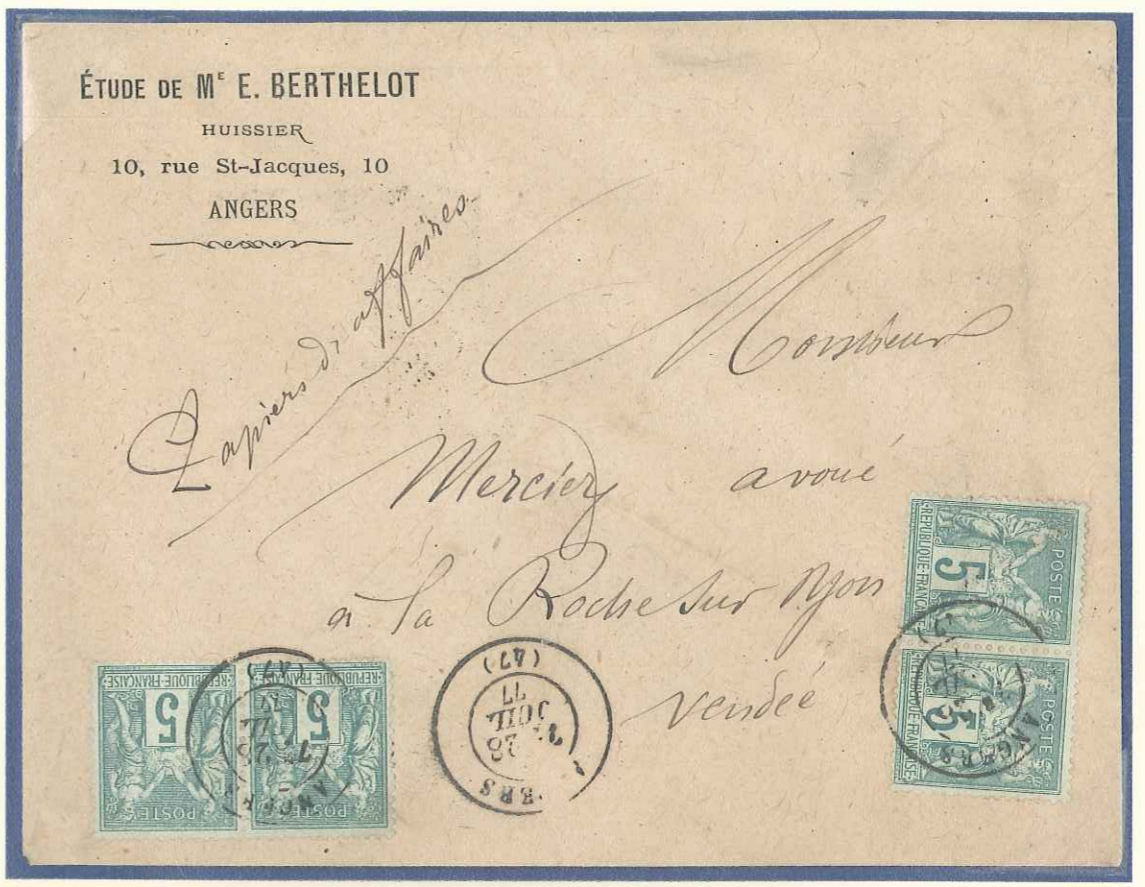 ÉTUDE DE Mᴱ E. BERTHELOT
HUISSIER
10, rue St-Jacques, 10
ANGERS
Papiers d'affaires
Monsieur
Mercier avoué
à la Roche sur Yon
Vendée
REPUBLIQUE FRANCAISE
5
POSTES
REPUBLIQUE FRANCAISE
5
POSTES
REPUBLIQUE FRANÇAISE
5
POSTES
REPUBLIQUE FRANÇAISE
5
POSTES
ANGERS
28
JUIL
77
(47)
ERS
28
JUIL
77
(47)
ANGERS